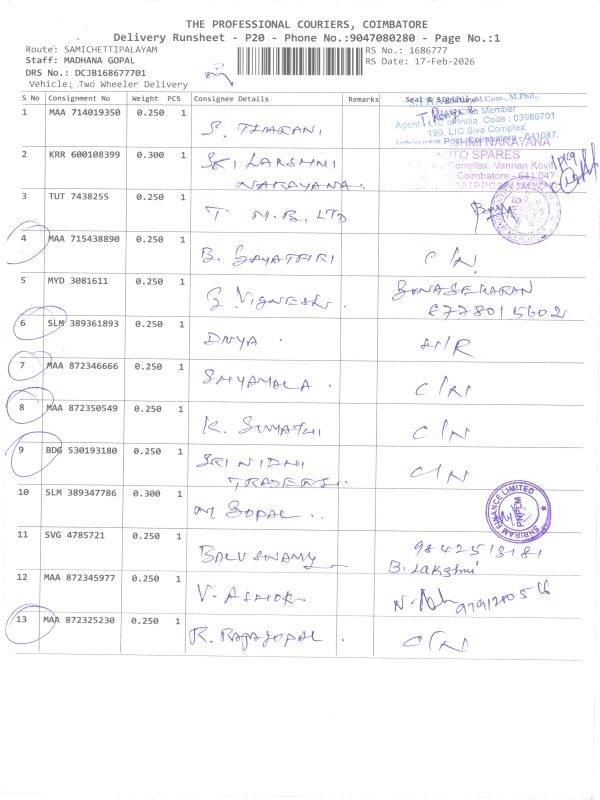 THE PROFESSIONAL COURIERS, COIMBATORE
Delivery Runsheet - P20 - Phone No.:9047080280 - Page No.:1
Route: SAMICHETTIPALAYAM RS No.: 1686777
Staff: MADHANA GOPAL RS Date: 17-Feb-2026
DRS No.: DCJB168677701
Vehicle: Two Wheeler Delivery
S No Consignment No Weight PCS Consignee Details Remarks Seal & Signature
M.Com., M.Phil.,
Member
1 MAA 714019350 0.250 1 S. THARANI
Agent LIC of India. Code : 03986701
190, LIC Siva Complex
Post, Coimbatore - 641047.
2 KRR 600108399 0.300 1 SRI LAKSHMI
NARAYANA.
LAKSHMI NARAYANA
AUTO SPARES
Complex, Vannan Kovil
Coimbatore - 641 047
3 TUT 7438255 0.250 1 T. M.B. LTD
4 MAA 715438890 0.250 1 B. GAYATHRI C/N.
5 MYD 3081611 0.250 1 G VIGNESH. GUNASEKARAN
6 SLM 389361893 0.250 1 DIVYA. H/R
7 MAA 872346666 0.250 1 SHYAMALA. C/N
8 MAA 872350549 0.250 1 K. SUMATHI C/N
9 BDG 530193180 0.250 1 SRI NIDHI C/N
TRADERS.
10 SLM 389347786 0.300 1 M. GOPAL.. SHRIRAM FINANCE LIMITED
PNPDM
11 SVG 4785721 0.250 1 BALUSWAMY
B. Lakshmi
12 MAA 872345977 0.250 1 V. ASHOK.
13 MAA 872325230 0.250 1 R. RAJAGOPAL. C/N